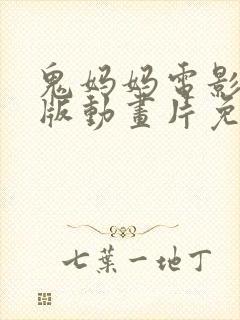 鬼妈妈電影
版動畫片免
七葉一地丁